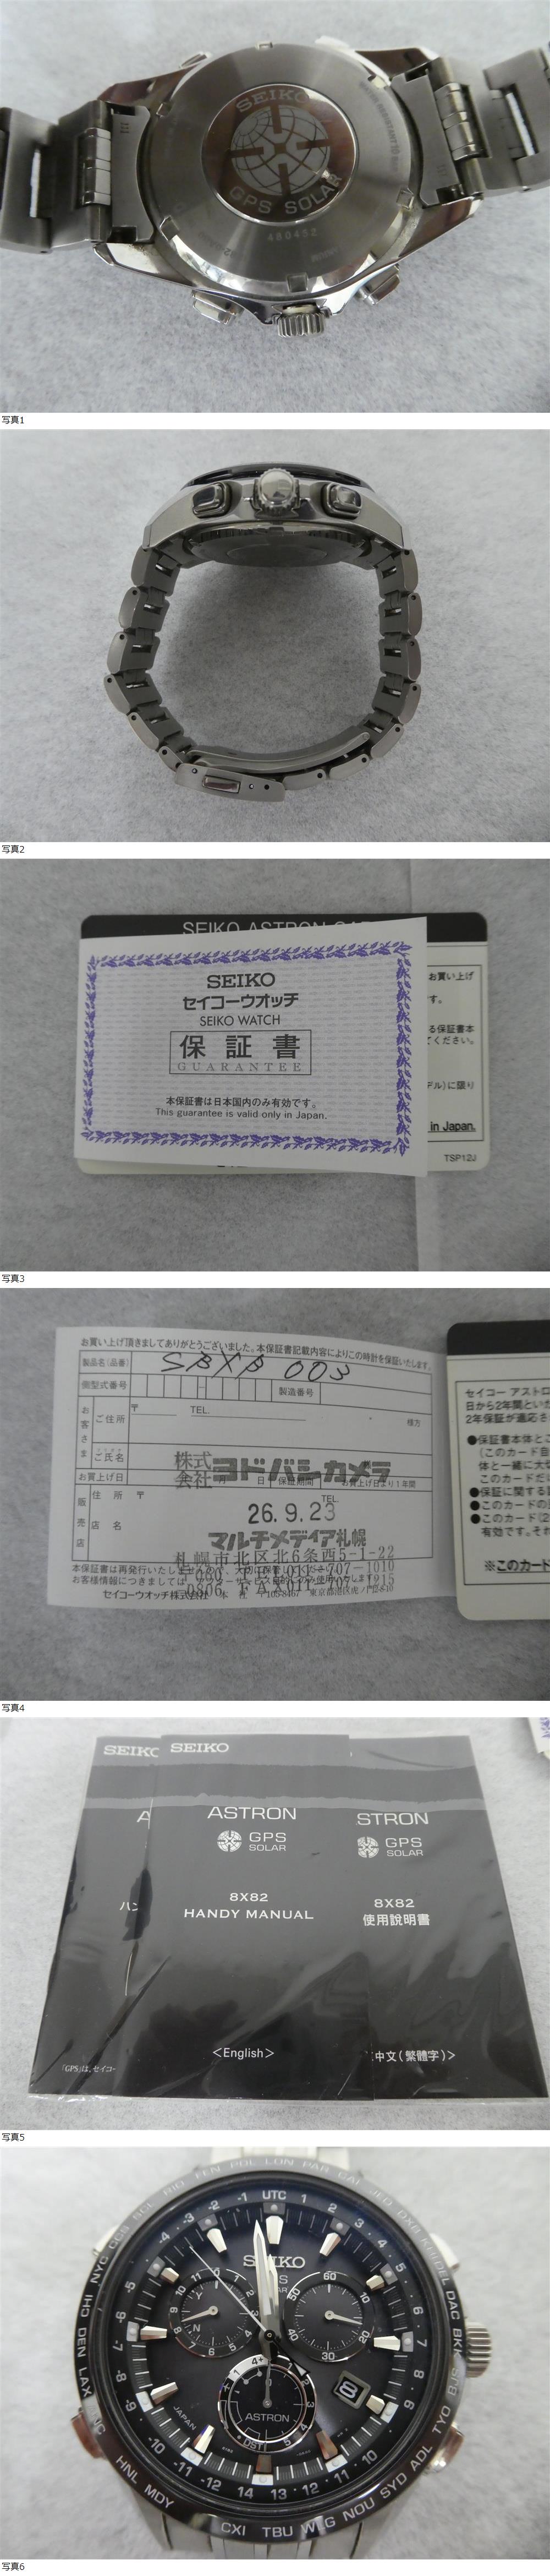 SEIKO
GPS SOLAR
480452
写真1
写真2
SEIKO ASTRON
SEIKO
セイコーウオッチ
SEIKO WATCH
保証書
GUARANTEE
本保証書は日本国内のみ有効です。
This guarantee is valid only in Japan.
お買い上げ
す。
る保証書本
てください。
デル)に限り
in Japan.
TSP12J
写真3
お買い上げ頂きましてありがとうございました。本保証書記載内容によりこの時計を保証いたします。
製品名(品番)
SBXB 003
側型式番号
製造番号
お客さま
ご住所
〒
TEL.
様方
ご氏名
株式会社ヨドバシカメラ
お買上げ日
日
保証期間
お買上げ日より1年間
販売店
住所
〒
TEL.
26.9.23
店名
マルチメディア札幌
札幌市北区北6条西5-1-22
本保証書は再発行いたしま
お客様情報につきましては
セイコーウオッチ株式会社
セイコー アストロ
日から2年間とい
2年保証が適応さ
●保証書本体とこ
(このカード自
体と一緒に大切
このカードだ
●保証に関する
●このカードの
●このカード(2
有効です。それ
※このカード
写真4
SEIKO
SEIKO
ASTRON
GPS
SOLAR
8X82
HANDY MANUAL
<English>
STRON
GPS
SOLAR
8X82
使用說明書
中文(繁體字)>
A
ハン
「GPS」は、セイコー
写真5
UTC 1 2 3 4 5 7 8 9 10 11 12 13 14 -12 -11 -10 -9 -8 -7 -6 -5 -4 -3 -2 -1
LON PAR CAI JED DXB KHI DEL DAC BKK BJS TYO ADL SYD NOU WLG TBU CXI MDY HNL LAX DEN CHI NYC CCS RIO FEN PDL
SEIKO
60
20
30
40
ASTRON
DST
JAPAN
8
写真6